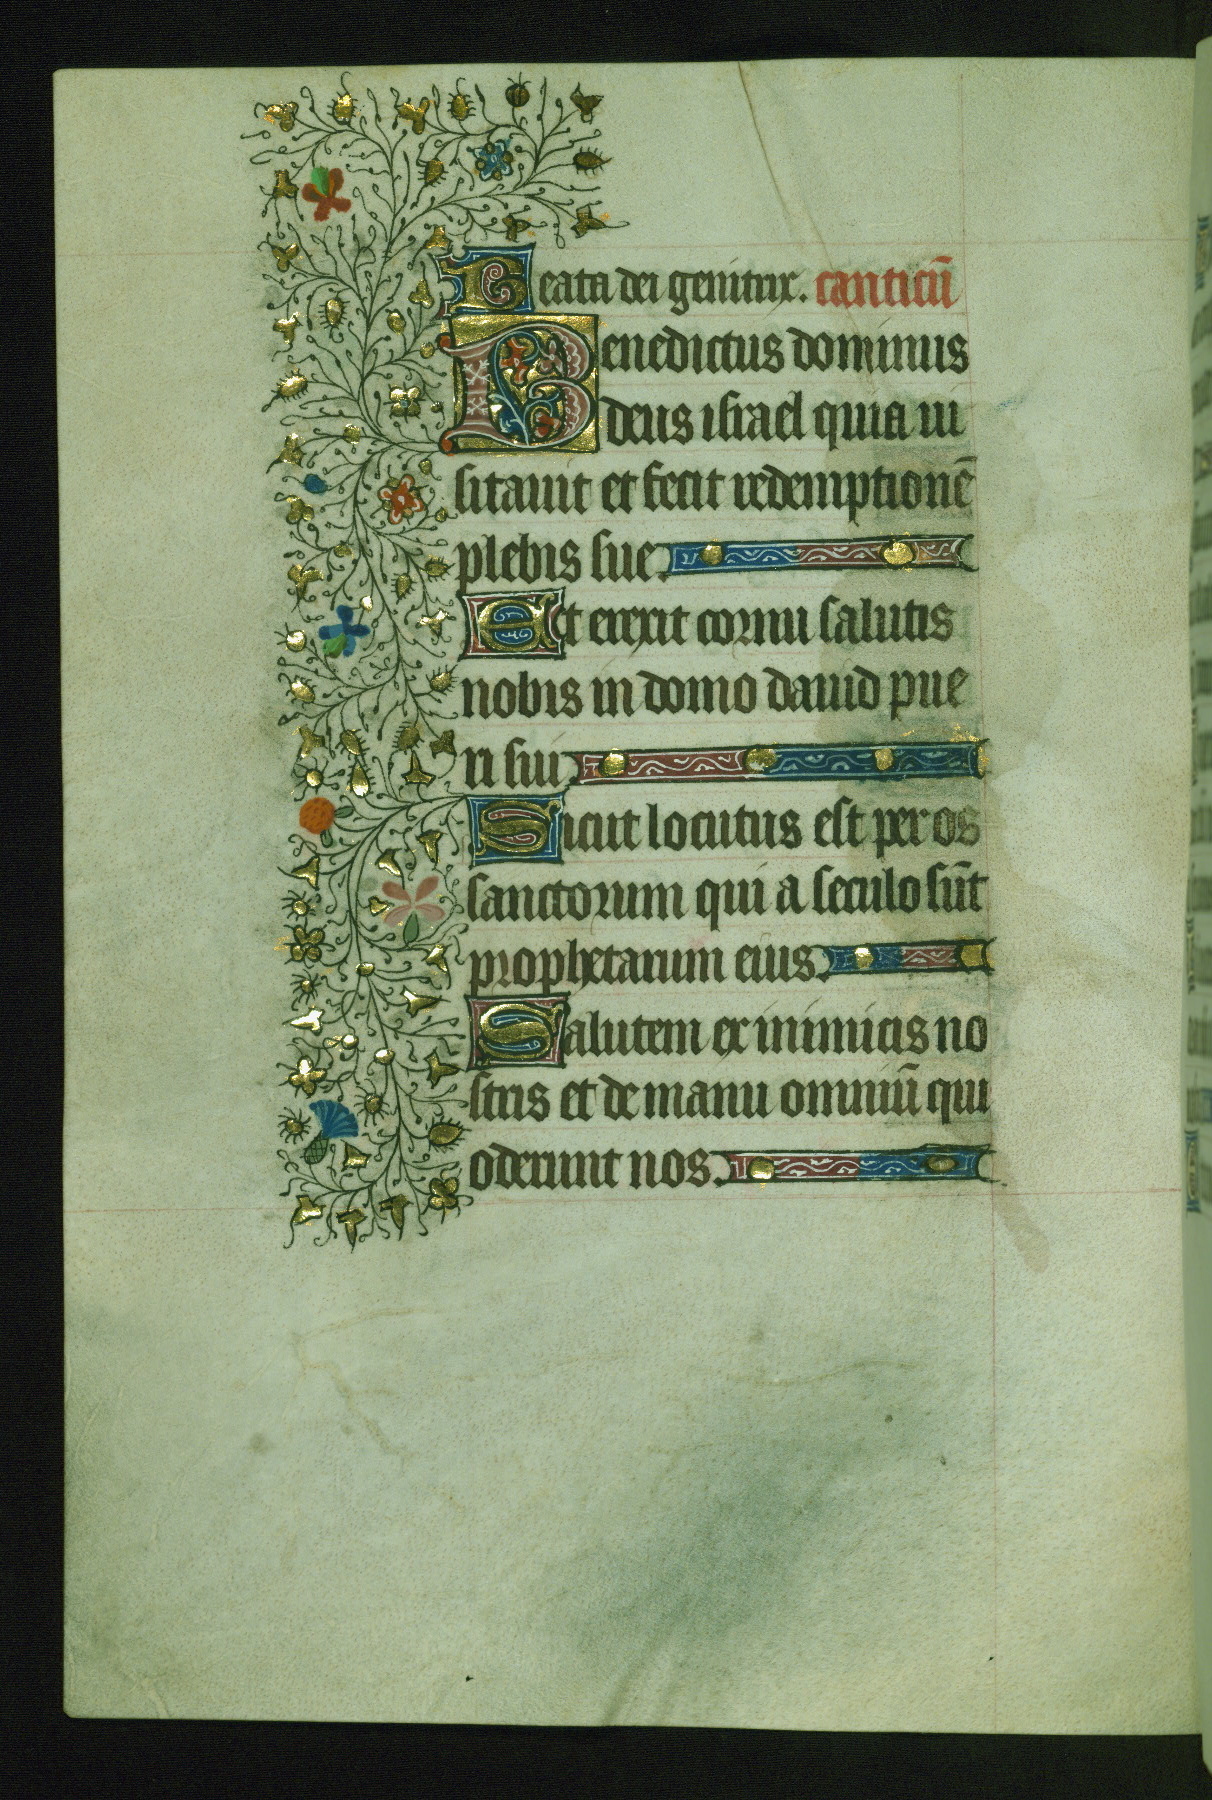 Beata dei genitrix. canticū
Benedictus dominus
deus israel quia ui
sitauit et fecit redemptionē
plebis sue.
Et erexit cornu salutis
nobis in domo dauid pue
ri sui.
Sicut locutus est per os
sanctorum qui a seculo sūt
prophetarum eius.
Salutem ex inimicis no
stris et de manu omniū qui
oderunt nos.